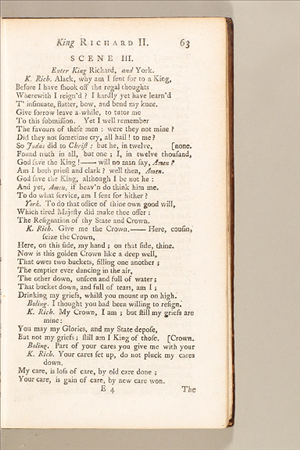 King RICHARD II. 63
SCENE III.
Enter King Richard, and York.
K. Rich. Alack, why am I sent for to a King,
Before I have shook off the regal thoughts
Wherewith I reign'd? I hardly yet have learn'd
T' insinuate, flatter, bow, and bend my knee.
Give sorrow leave a-while, to tutor me
To this submission. Yet I well remember
The favours of these men: were they not mine?
Did they not sometime cry, all hail! to me?
So Judas did to Christ: but he, in twelve, [none.
Found truth in all, but one; I, in twelve thousand,
God save the King!——will no man say, Amen?
Am I both priest and clark? well then, Amen.
God save the King, although I be not he:
And yet, Amen, if heav'n do think him me.
To do what service, am I sent for hither?
York. To do that office of thine own good will,
Which tired Majesty did make thee offer:
The Resignation of thy State and Crown.
K. Rich. Give me the Crown.——Here, cousin,
seize the Crown,
Here, on this side, my hand; on that side, thine.
Now is this golden Crown like a deep well,
That owes two buckets, filling one another;
The emptier ever dancing in the air,
The other down, unseen and full of water:
That bucket down, and full of tears, am I;
Drinking my griefs, whilst you mount up on high.
Boling. I thought you had been willing to resign.
K. Rich. My Crown, I am; but still my griefs are
mine:
You may my Glories, and my State depose,
But not my griefs; still am I King of those. [Crown.
Boling. Part of your cares you give me with your
K. Rich. Your cares set up, do not pluck my cares
down.
My care, is loss of care, by old care done;
Your care, is gain of care, by new care won.
E 4 The